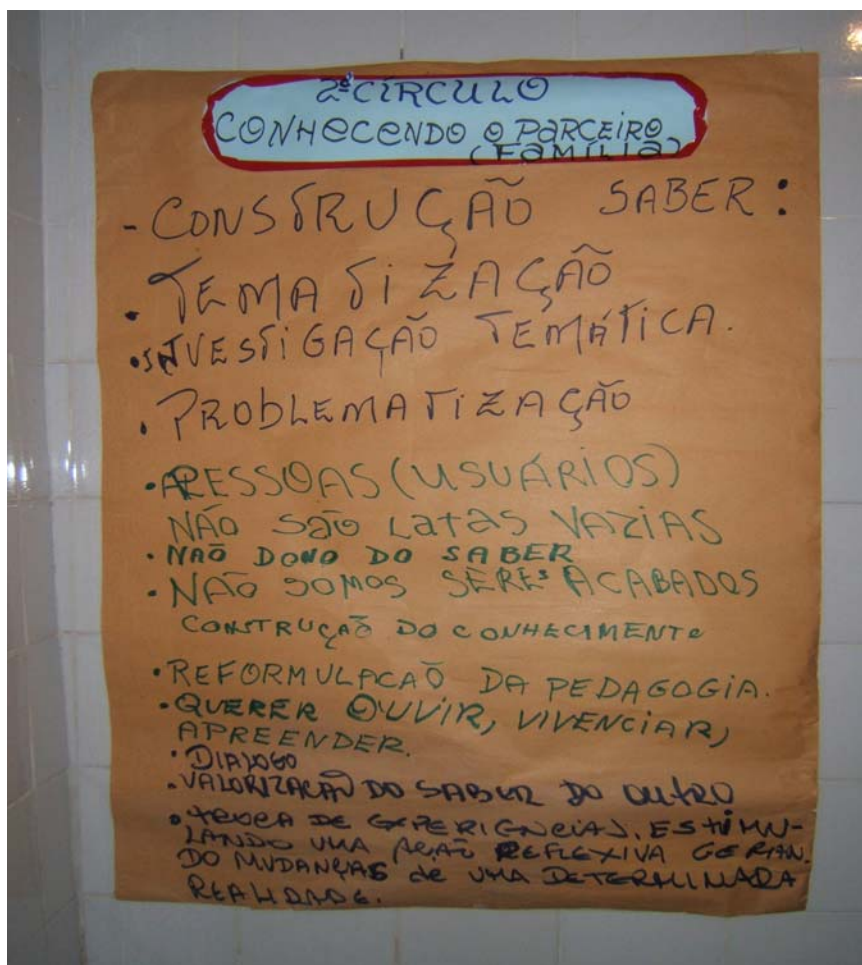 2º CÍRCULO
CONHECENDO O PARCEIRO
(FAMÍLIA)
- CONSTRUÇÃO SABER:
. TEMATIZAÇÃO
. INVESTIGAÇÃO TEMÁTICA.
. PROBLEMATIZAÇÃO
. PESSOAS (USUÁRIOS)
NÃO SÃO LATAS VAZIAS
. NÃO DONO DO SABER
. NÃO SOMOS SERES ACABADOS
CONSTRUÇÃO DO CONHECIMENTO
. REFORMULACAÕ DA PEDAGOGIA.
. QUERER OUVIR, VIVENCIAR,
APREENDER.
. DIALOGO
. VALORIZAÇÃO DO SABER DO OUTRO
. TROCA DE EXPERIENCIAS, ESTIMU-
LANDO UMA AÇÃO REFLEXIVA GERAN-
DO MUDANÇAS de UMA DETERMINADA
REALIDADE.